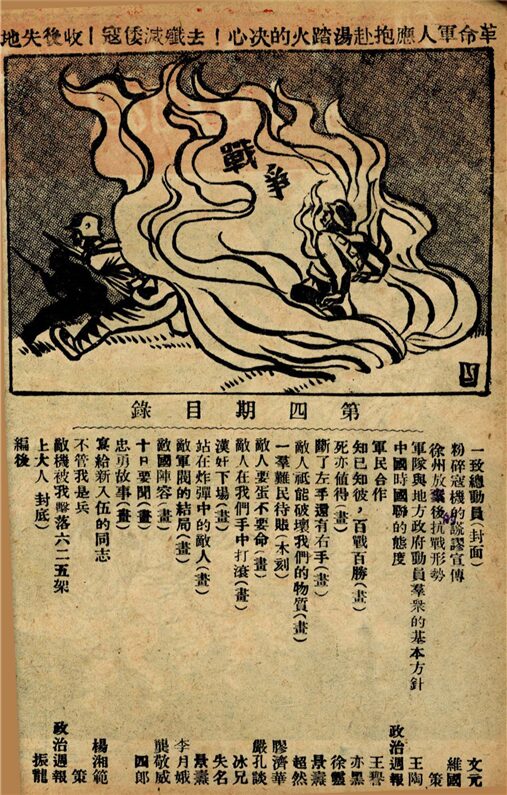 革命軍人應抱赴湯踏火的決心！去殲滅倭寇！收復失地
戰爭
第四期目錄
一致總動員（封面） 文元
粉碎寇機的謊謬宣傳 維國
徐州放棄後抗戰形勢 策
軍隊與地方政府動員羣衆的基本方針 王陶
中國時國聯的態度 政治週報
軍民合作 王譽
知已知彼，百戰百勝（畫） 亦黑
死亦值得（畫） 徐靈
斷了左手還有右手（畫） 景燾
敵人祇能破壞我們的物質（畫） 超然
一羣難民待賬（木刻） 膠濟華
敵人要蛋不要命（畫） 嚴孔談
敵人在我們手中打滾（畫） 冰兄
漢奸下場（畫） 失名
站在炸彈中的敵人（畫） 景燾
敵軍閥的結局（畫） 李月娥
敵國陣容（畫） 龔敬威
十日要聞（畫） 四郎
忠勇故事（畫）
寫給新入伍的同志 楊湘範
不管我是兵 策
敵機被我擊落六二五架 政治週報
上大人（封底） 振龍
編後